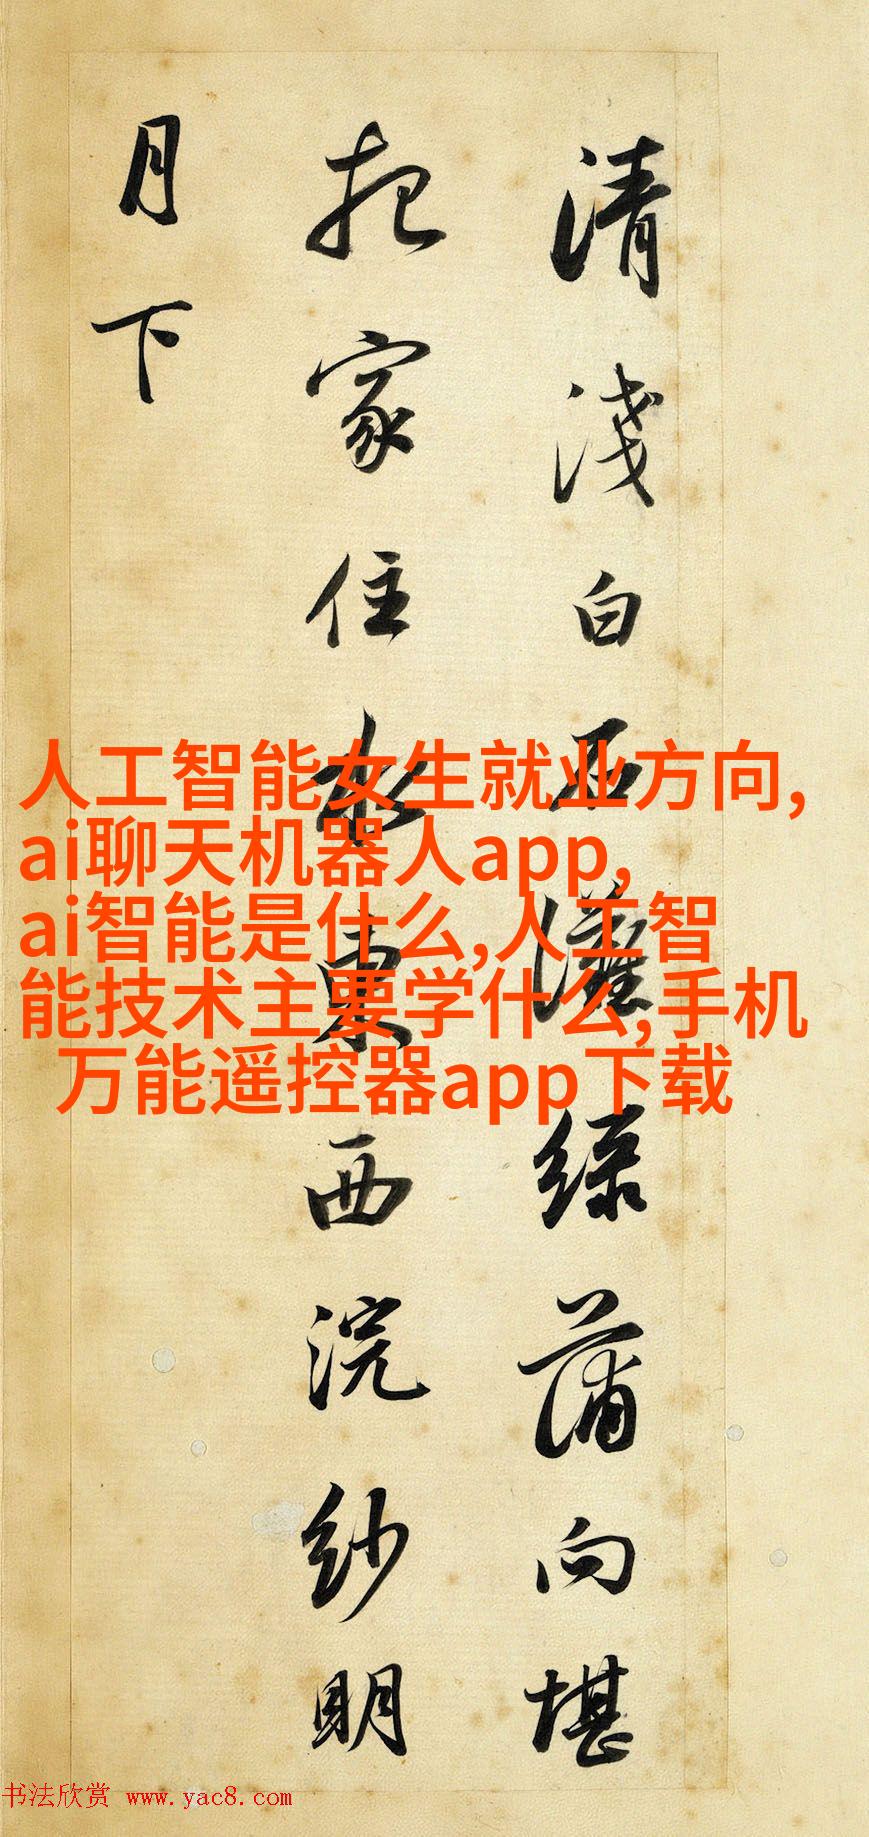 清淺白石灘綠蒲向堪
把家住水東西浣紗明
月下
人工智能女生就业方向,
ai聊天机器人app,
ai智能是什么,人工智
能技术主要学什么,手机
万能遥控器app下载
书法欣赏 www.yac8.com